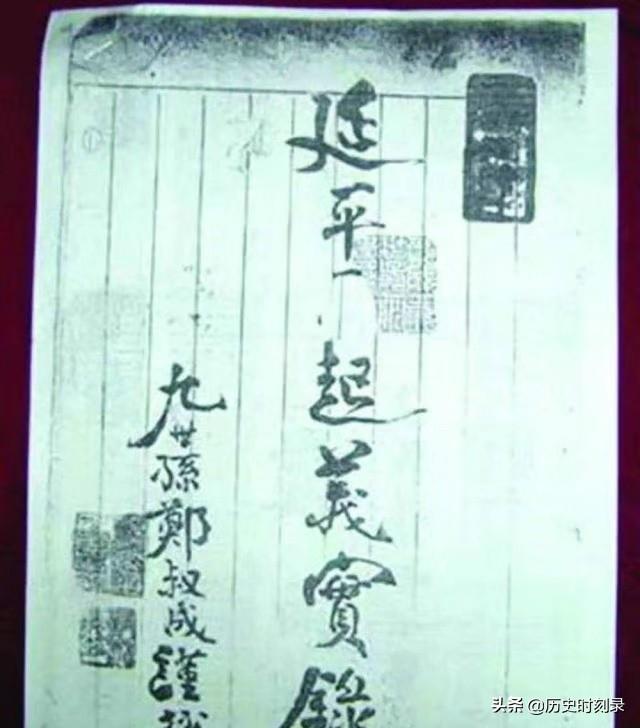 延平 起義實錄
九世孫鄭叔成謹
头条 @历史时刻录